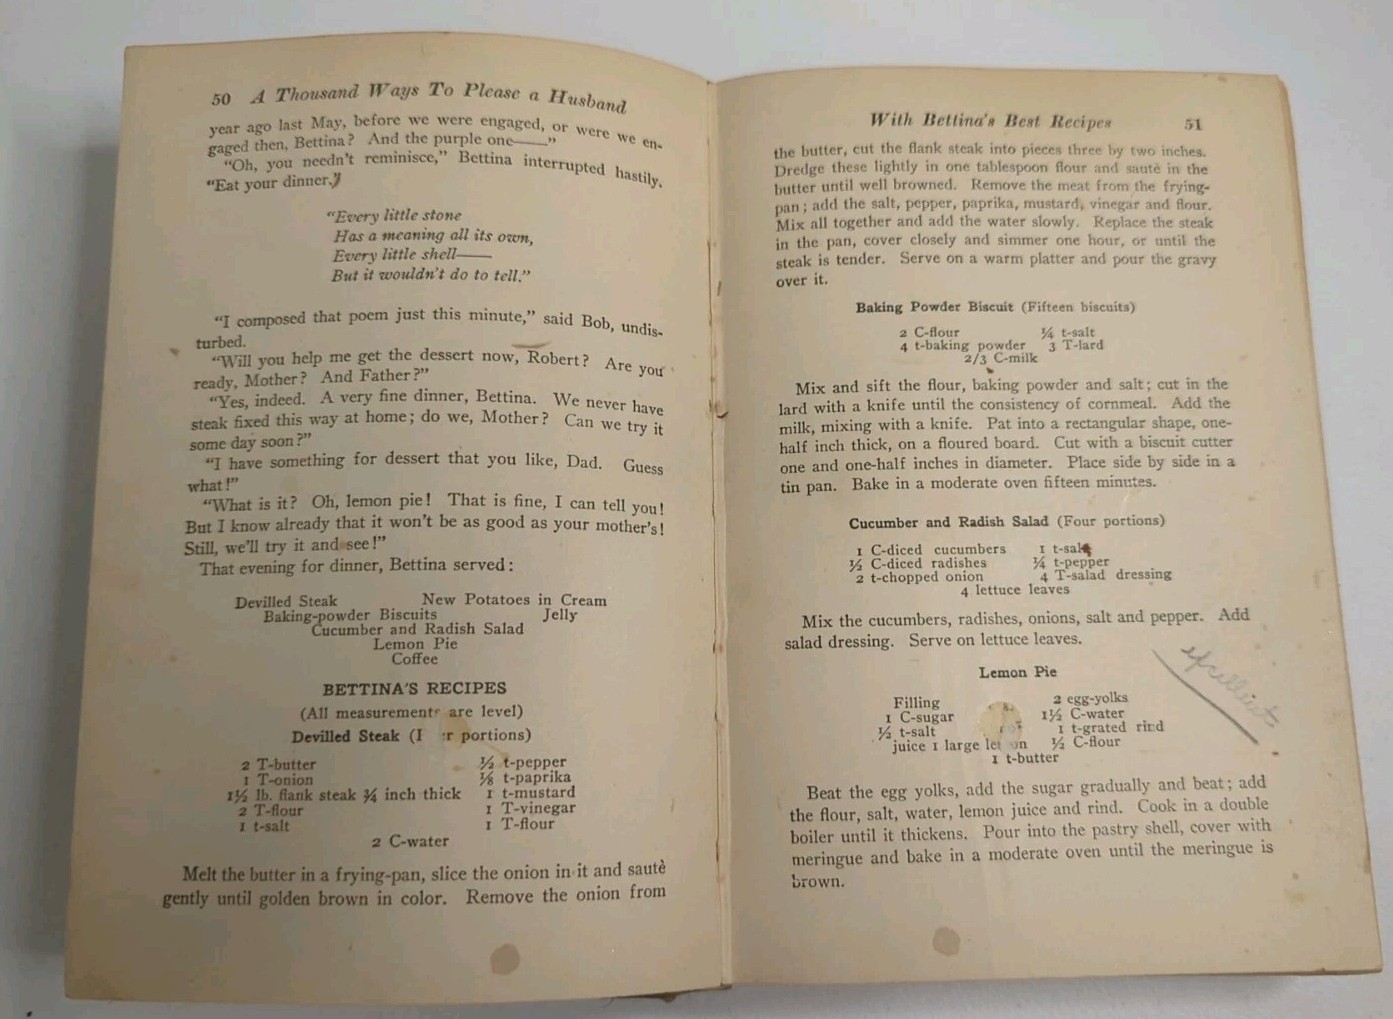 50 A Thousand Ways To Please a Husband
year ago last May, before we were engaged, or were we en-
gaged then, Bettina? And the purple one——"
"Oh, you needn't reminisce," Bettina interrupted hastily.
"Eat your dinner."
"Every little stone
Has a meaning all its own,
Every little shell——
But it wouldn't do to tell."
"I composed that poem just this minute," said Bob, undis-
turbed.
"Will you help me get the dessert now, Robert? Are you
ready, Mother? And Father?"
"Yes, indeed. A very fine dinner, Bettina. We never have
steak fixed this way at home; do we, Mother? Can we try it
some day soon?"
"I have something for dessert that you like, Dad. Guess
what!"
"What is it? Oh, lemon pie! That is fine, I can tell you!
But I know already that it won't be as good as your mother's!
Still, we'll try it and see!"
That evening for dinner, Bettina served:
Devilled Steak New Potatoes in Cream
Baking-powder Biscuits Jelly
Cucumber and Radish Salad
Lemon Pie
Coffee
BETTINA'S RECIPES
(All measurements are level)
Devilled Steak ( portions)
2 T-butter ½ t-pepper
1 T-onion ⅛ t-paprika
1½ lb. flank steak ¾ inch thick 1 t-mustard
2 T-flour 1 T-vinegar
1 t-salt 1 T-flour
2 C-water
Melt the butter in a frying-pan, slice the onion in it and sautè
gently until golden brown in color. Remove the onion from
With Bettina's Best Recipes 51
the butter, cut the flank steak into pieces three by two inches.
Dredge these lightly in one tablespoon flour and sautè in the
butter until well browned. Remove the meat from the frying-
pan; add the salt, pepper, paprika, mustard, vinegar and flour.
Mix all together and add the water slowly. Replace the steak
in the pan, cover closely and simmer one hour, or until the
steak is tender. Serve on a warm platter and pour the gravy
over it.
Baking Powder Biscuit (Fifteen biscuits)
2 C-flour ¼ t-salt
4 t-baking powder 3 T-lard
2/3 C-milk
Mix and sift the flour, baking powder and salt; cut in the
lard with a knife until the consistency of cornmeal. Add the
milk, mixing with a knife. Pat into a rectangular shape, one-
half inch thick, on a floured board. Cut with a biscuit cutter
one and one-half inches in diameter. Place side by side in a
tin pan. Bake in a moderate oven fifteen minutes.
Cucumber and Radish Salad (Four portions)
1 C-diced cucumbers 1 t-salt
½ C-diced radishes ¼ t-pepper
2 t-chopped onion 4 T-salad dressing
4 lettuce leaves
Mix the cucumbers, radishes, onions, salt and pepper. Add
salad dressing. Serve on lettuce leaves.
excellent
Lemon Pie
Filling 2 egg-yolks
1 C-sugar 1½ C-water
½ t-salt 1 t-grated rind
juice 1 large lemon ½ C-flour
1 t-butter
Beat the egg yolks, add the sugar gradually and beat; add
the flour, salt, water, lemon juice and rind. Cook in a double
boiler until it thickens. Pour into the pastry shell, cover with
meringue and bake in a moderate oven until the meringue is
brown.